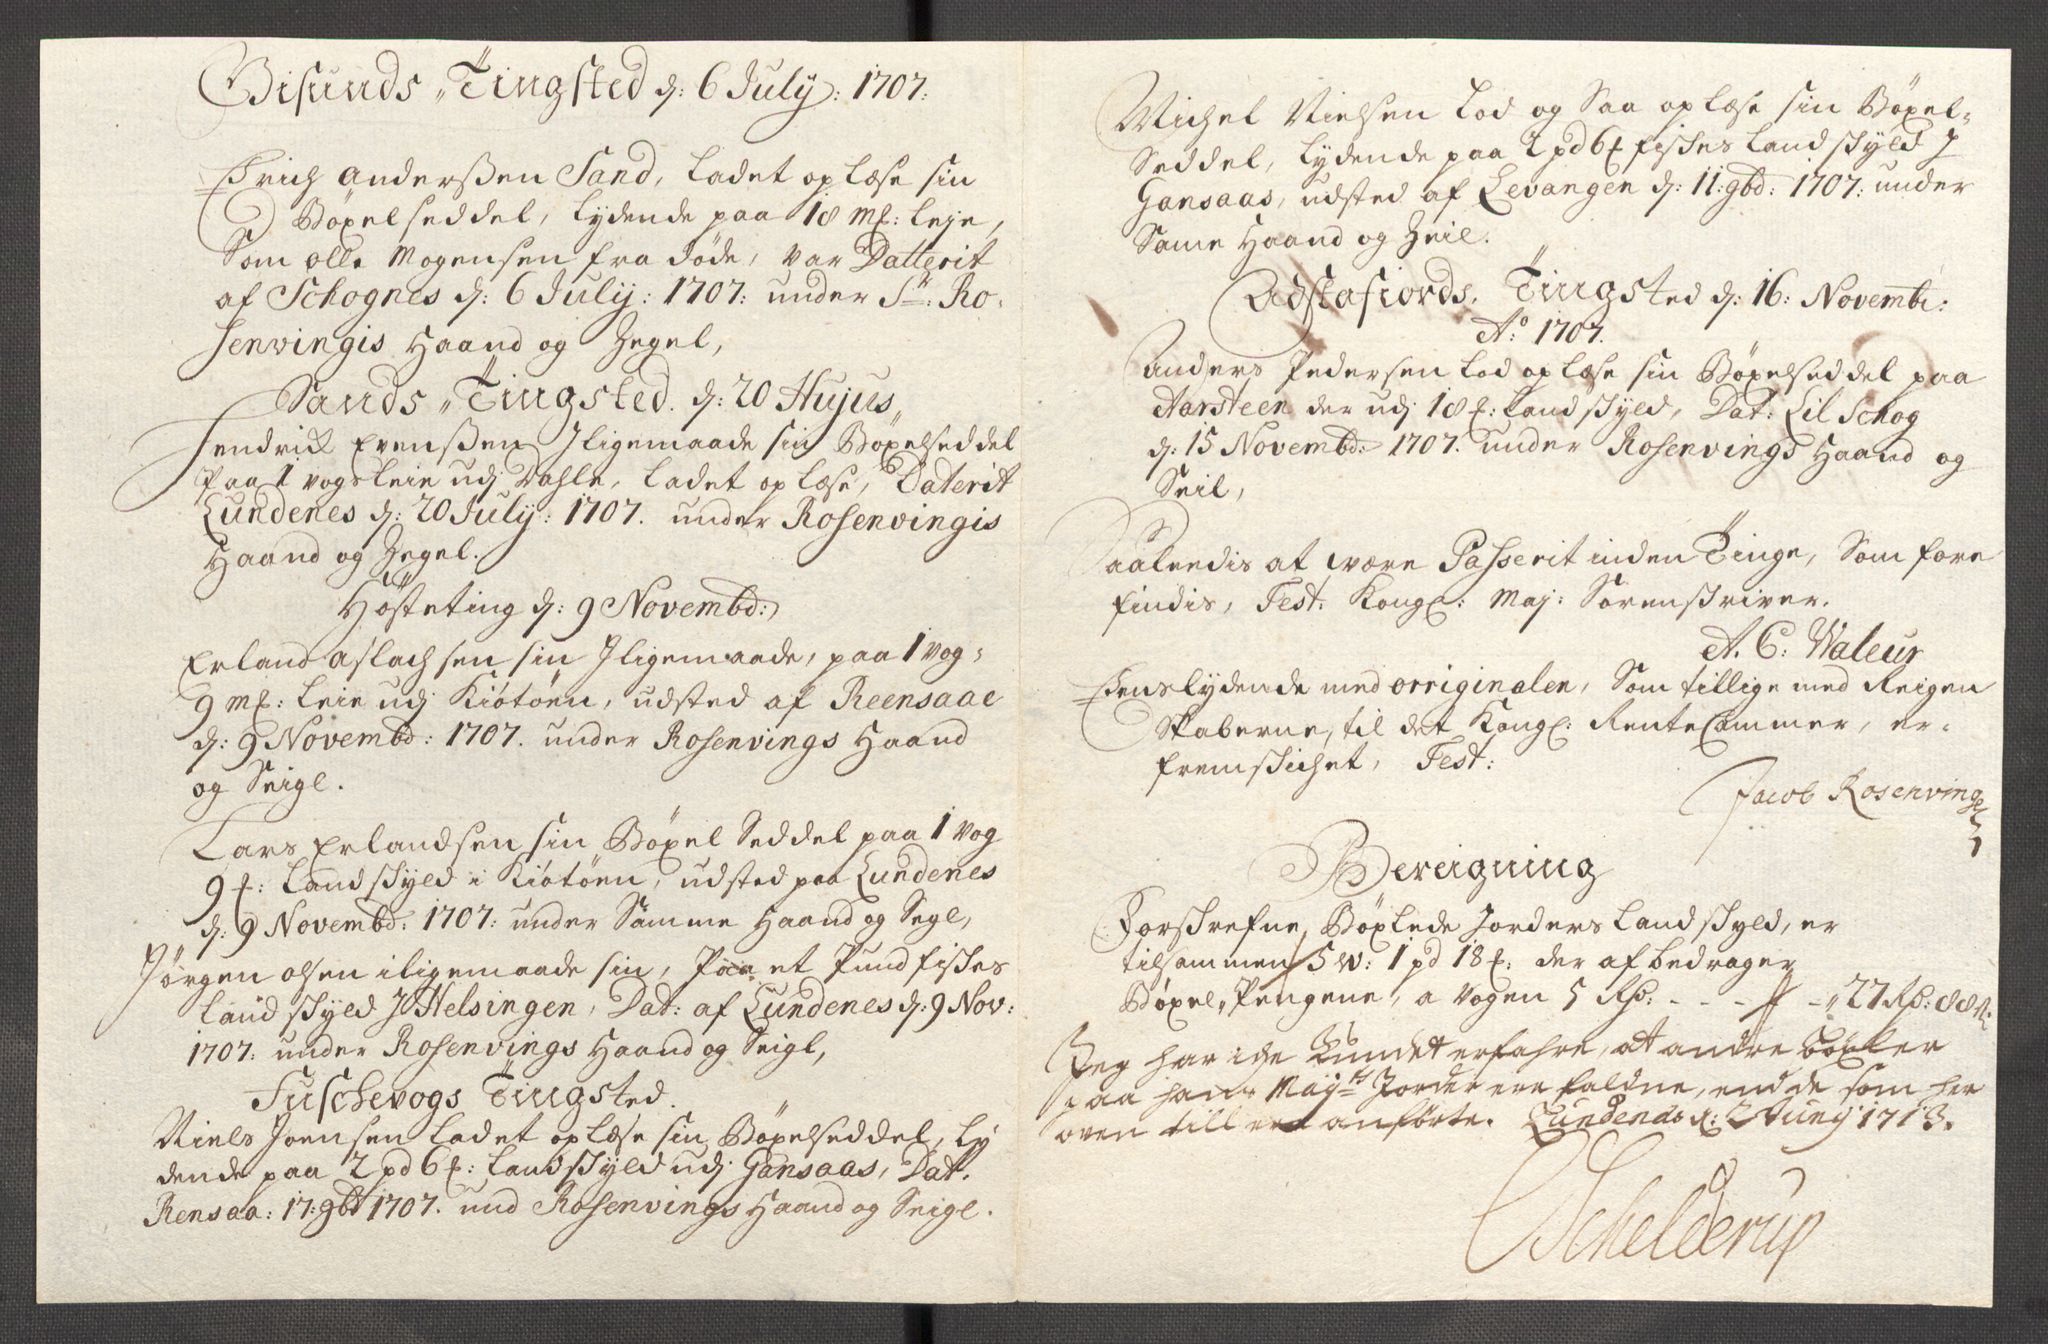 Gisunds Tingsted d: 6 July: 1707:
Erich Anderßen Sand, Ladet oplæse sin
Böxelseddel, lydende paa 18 mk: leje,
Som olle Mogensen fra döde, var Datterit
af Schognes d: 6 July: 1707: under Sr: Ro-
senvingis Haand og Zegel,
Sands Tingsted. d: 20 Hujus
Hendrik Evenßen Iligemaade sin Böxelseddel
Paa 1 vogs leie udj Dahle, Ladet oplæse, Daterit
Lundenes d: 20 July: 1707. under Rosenvingis
Haand og Zegel.
Hösteting d: 9 Novembd:
Erland Aslachsen sin Iligemaade, paa 1 vog-
9 mk: leie udj Kiötöen, udsted af Reensaae
d: 9 Novembd: 1707. under Rosenvings Haand
og Seigl.
Lars Erlandsen sin Böxel Seddel paa 1 vog
9 f: Landskyld i Kiötöen, udsted paa Lundenes
d: 9 Novembd: 1707: under Samme Haand og Segl,
Jörgen olsen iligemaade sin, Paa et Pund fiskes
Landskyld I Helsingen, Dat: af Lundenes d: 9 Nov:
1707: under Rosenvings Haand og Seigl,
Fuschevogs Tingsted.
Niels Joensen Ladet oplæse sin Böxelseddel, ly
dende paa 2 pd 6 f: Landskyld udj Gansaas, Dat.
Rensaa: 17: 9bd 1707. und Rosenvings Haand og Seigl.
Michel Nielsen Lod og Saa oplæse sin Böxel-
Seddel, Lydende paa 2 pd 6 f fiskes Landskyld J
Gansaas, udsted af Levangen d: 11: 9bd: 1707: under
Same Haand og Zeil.
Astafiords, Tingsted d: 16: Novembr:
Ao: 1707.
Anders Pedersen Lod oplæse sin Böxelseddel paa
Aarsteen der udj 18 f: Landskyld, Dat: Lil Schog
d: 15 Novembd: 1707. under Rosenvings Haand og
Seil,
Saaleedis at være Passerit inden Tinge, Som fore
findis, Test. Kongl: Maj: Sorenskriver.
A. C: Waleur
Eenslydende med orriginalen, Som tillige med Reigen
Skaberne, til det Kongl: Rente Cammer, er-
fremskichet, Test:
Jacob Rosenvinge
Bereigning
Forskrefne, Böxlede Jorders Landskyld, er
tilsammen 5 W: 1 pd 18 f: der af bedrager
Böxel, Pengene, a Vogen 5 Rß: - - - - 27 Rß: 88 s.
Jeg har iche Kundet erfahre, at andre böxler
paa hans Maijts Jorder ere faldne, end de som her
oven till ere anförte. Lundenes d: 2 Junij 1713.
Schelderup